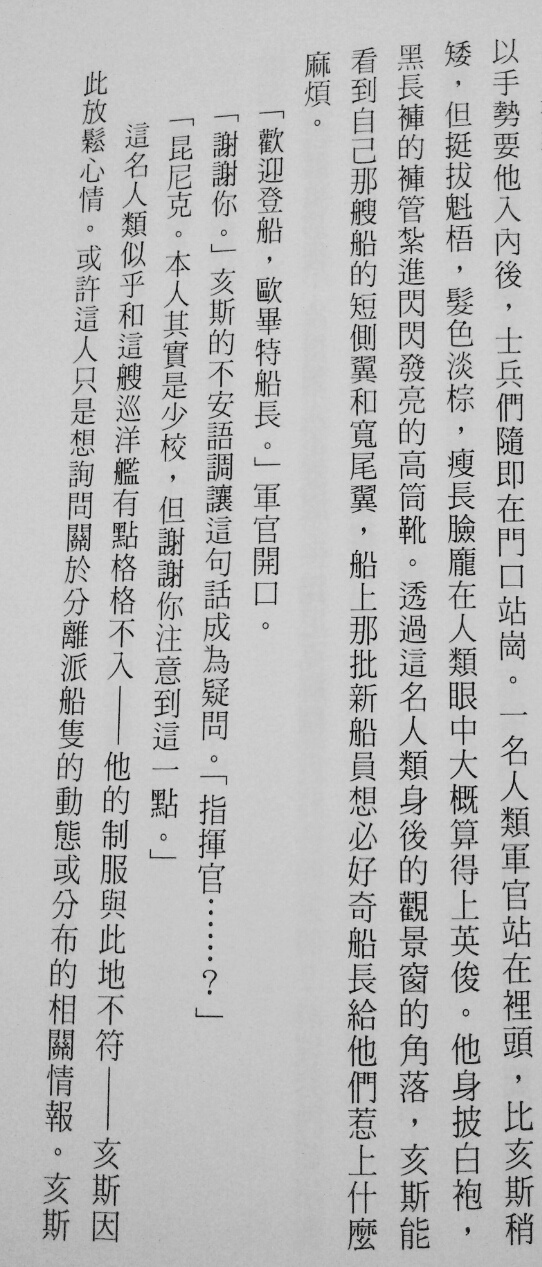 以手勢要他入內後，士兵們隨即在門口站崗。一名人類軍官站在裡頭，比亥斯稍
矮，但挺拔魁梧，髮色淡棕，瘦長臉龐在人類眼中大概算得上英俊。他身披白袍，
黑長褲的褲管紮進閃閃發亮的高筒靴。透過這名人類身後的觀景窗的角落，亥斯能
看到自己那艘船的短側翼和寬尾翼，船上那批新船員想必好奇船長給他們惹上什麼
麻煩。
「歡迎登船，歐畢特船長。」軍官開口。
「謝謝你。」亥斯的不安語調讓這句話成為疑問。「指揮官……？」
「昆尼克。本人其實是少校，但謝謝你注意到這一點。」
這名人類似乎和這艘巡洋艦有點格格不入——他的制服與此地不符——亥斯因
此放鬆心情。或許這人只是想詢問關於分離派船隻的動態或分布的相關情報。亥斯